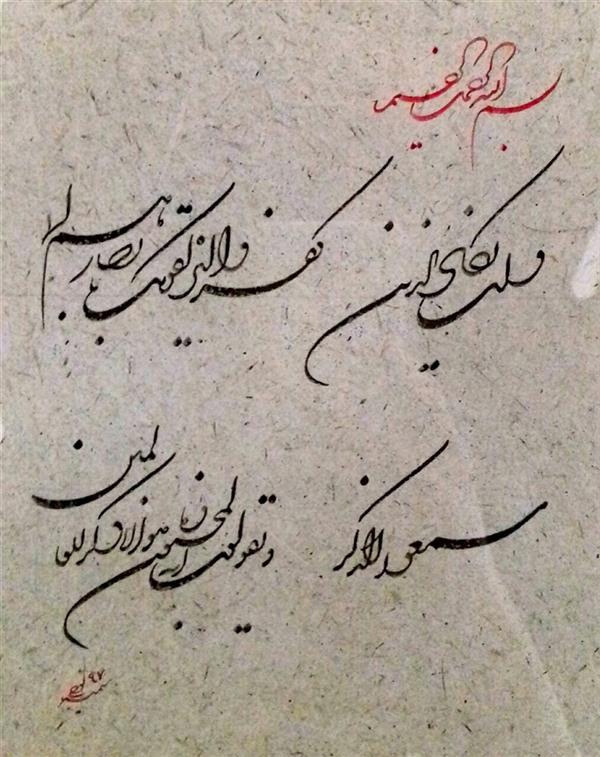 بسم الله الرحمن الرحیم
و ان یکاد الذین کفروا لیزلقونک بابصارهم لما
سمعوا الذکر و یقولون انه لمجنون و ما هو الا ذکر للعالمین
۹۷